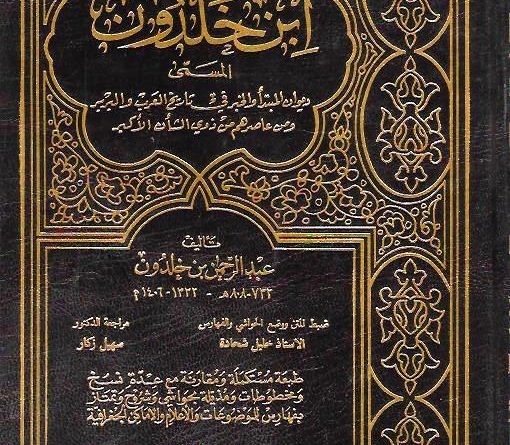 ابن خلدون
المسمى
ديوان المبتدأ والخبر في تاريخ العرب والبربر
ومن عاصرهم من ذوي الشأن الأكبر
تأليف
عبد الرحمن بن خلدون
٧٣٢-٨٠٨هـ - ١٣٣٢-١٤٠٦م
ضبط المتن ووضع الحواشي والفهارس
الاستاذ خليل شحادة
مراجعة الدكتور
سهيل زكار
طبعة مستكملة ومقارنة مع عدة نسخ
ومخطوطات ومذيلة بحواشي وشروح وتمتاز
بفهارس للموضوعات والأعلام والأماكن الجغرافية